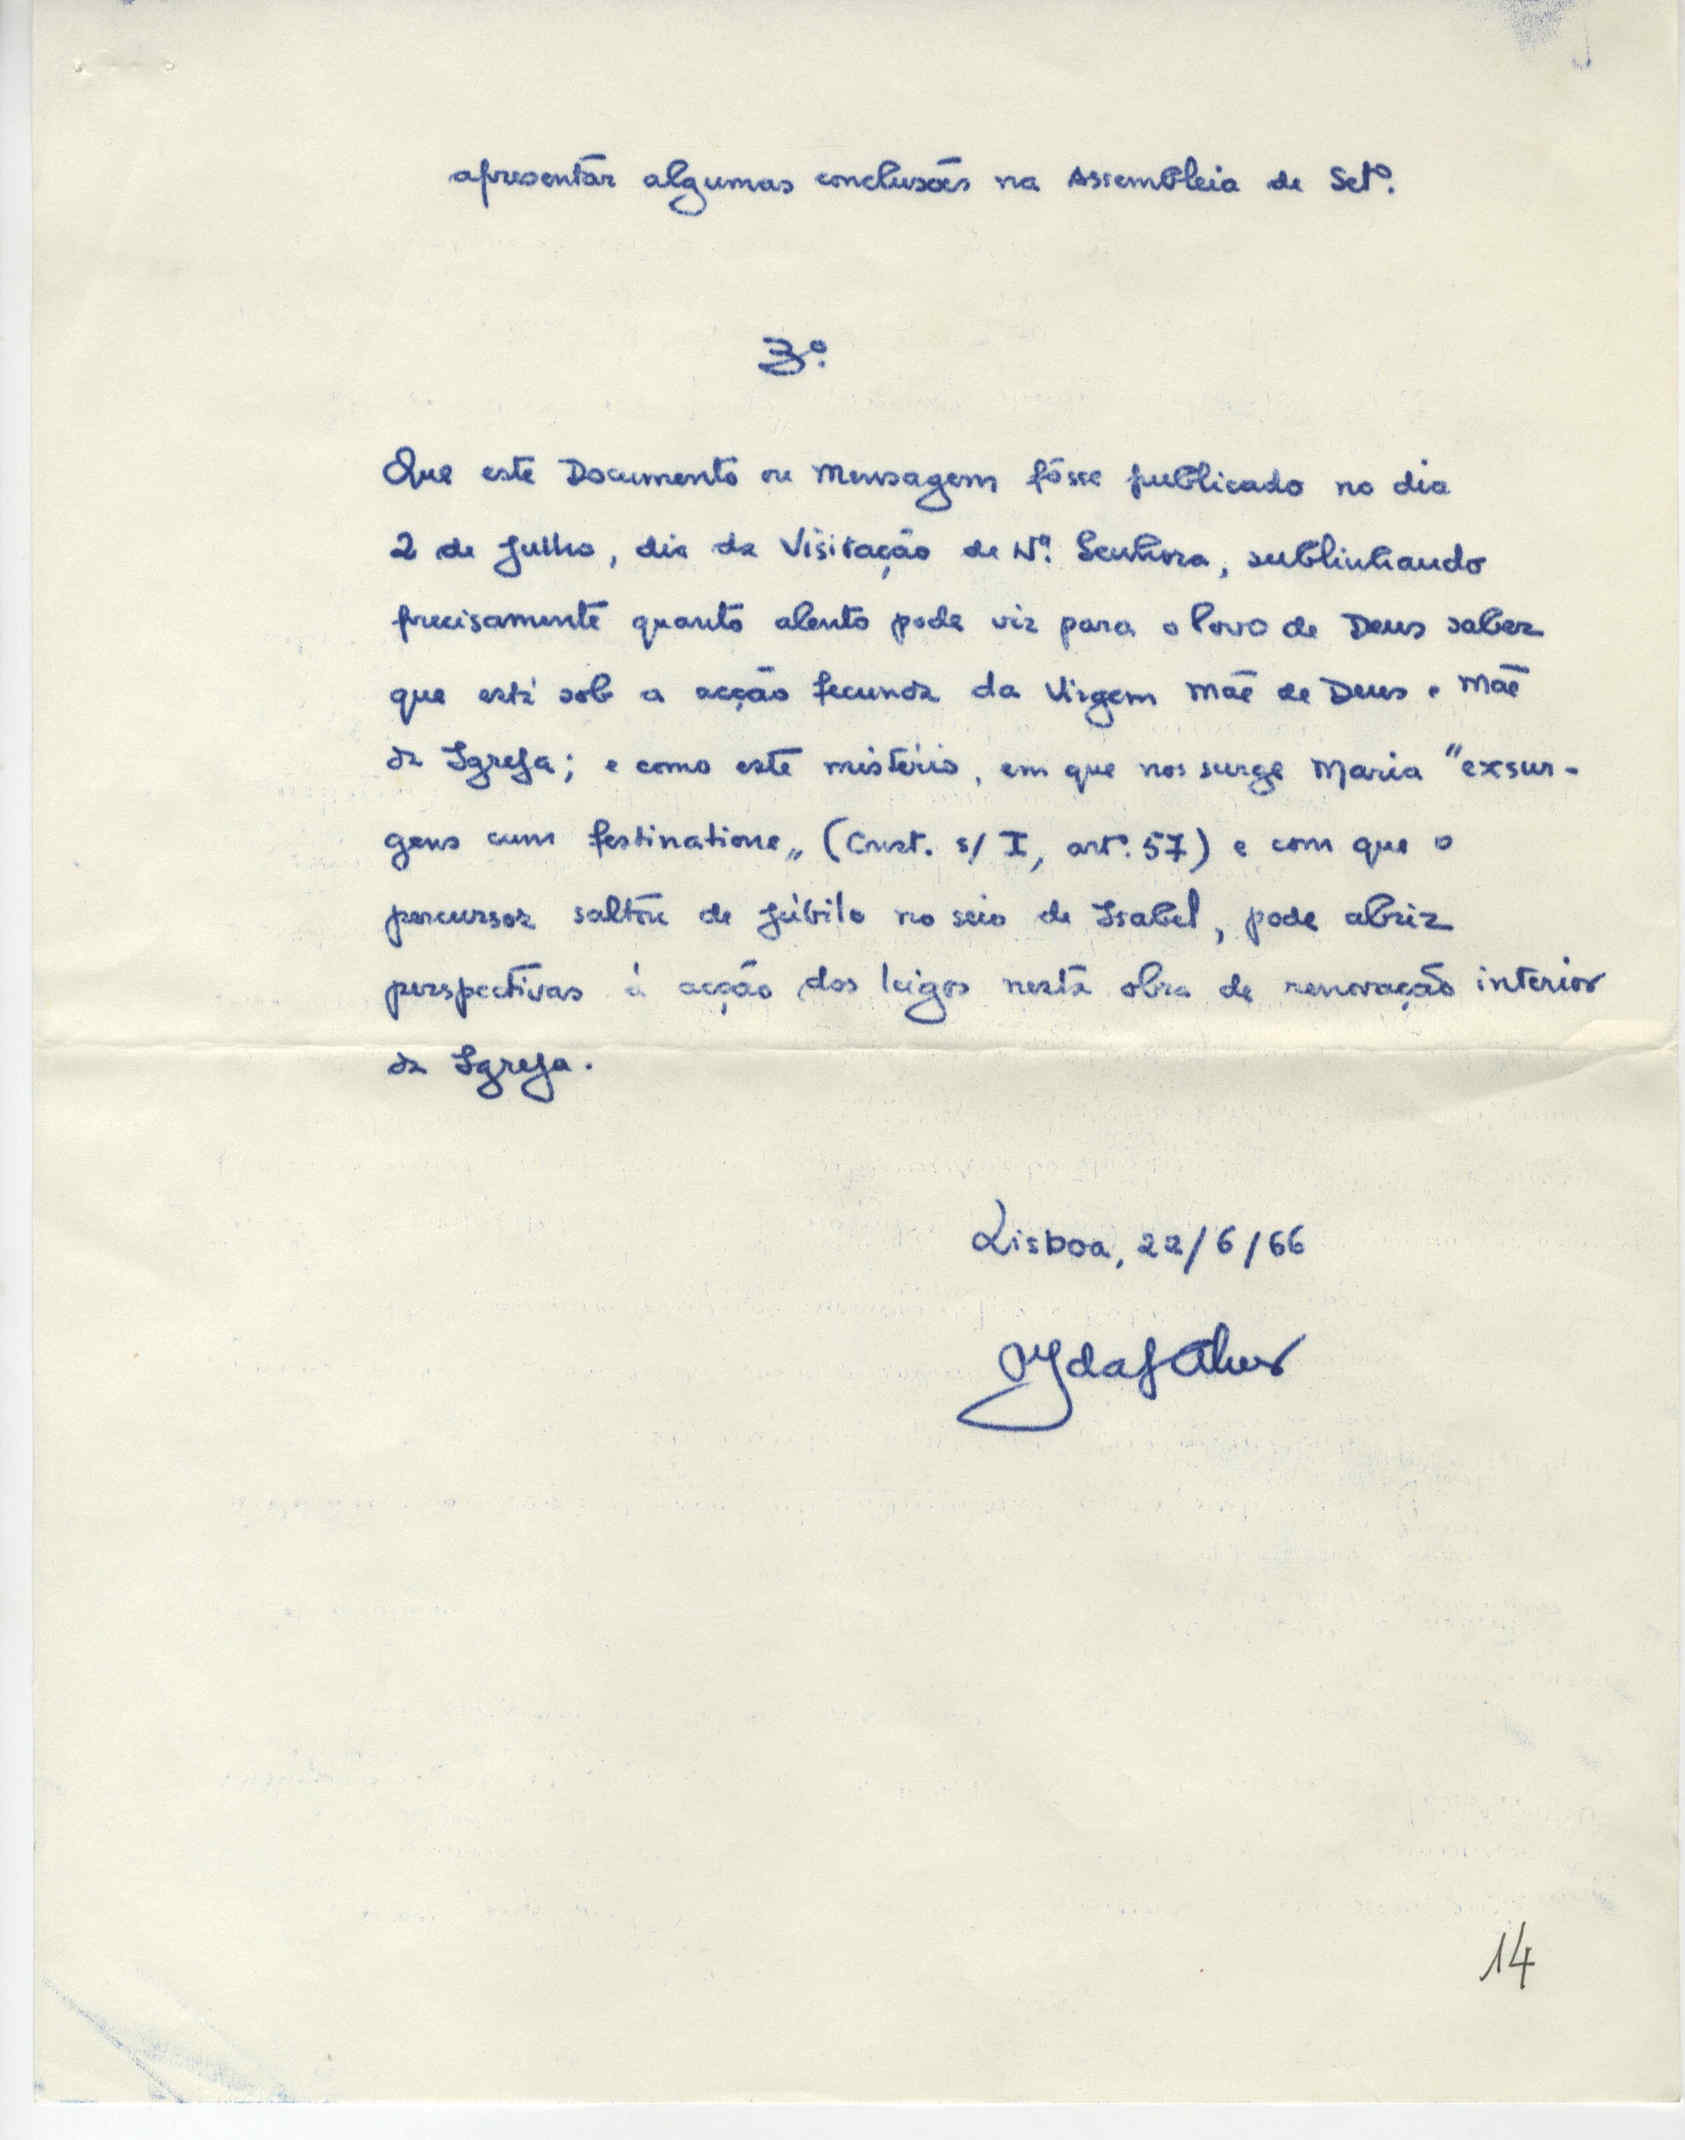 apresentar algumas conclusões na Assembleia de Setº.
3º.
Que este Documento ou Mensagem fôsse publicado no dia
2 de Julho, dia da Visitação de Nª. Senhora, sublinhando
precisamente quanto alento pode vir para o Povo de Deus saber
que está sob a acção fecunda da Virgem Mãe de Deus e Mãe
da Igreja; e como este mistério, em que nos surge Maria "exsur-
gens cum festinatione„ (Const. s/ I, artº. 57) e com que o
percursor saltou de júbilo no seio de Isabel, pode abrir
perspectivas à acção dos leigos nesta obra de renovação interior
da Igreja.
Lisboa, 22/6/66
14